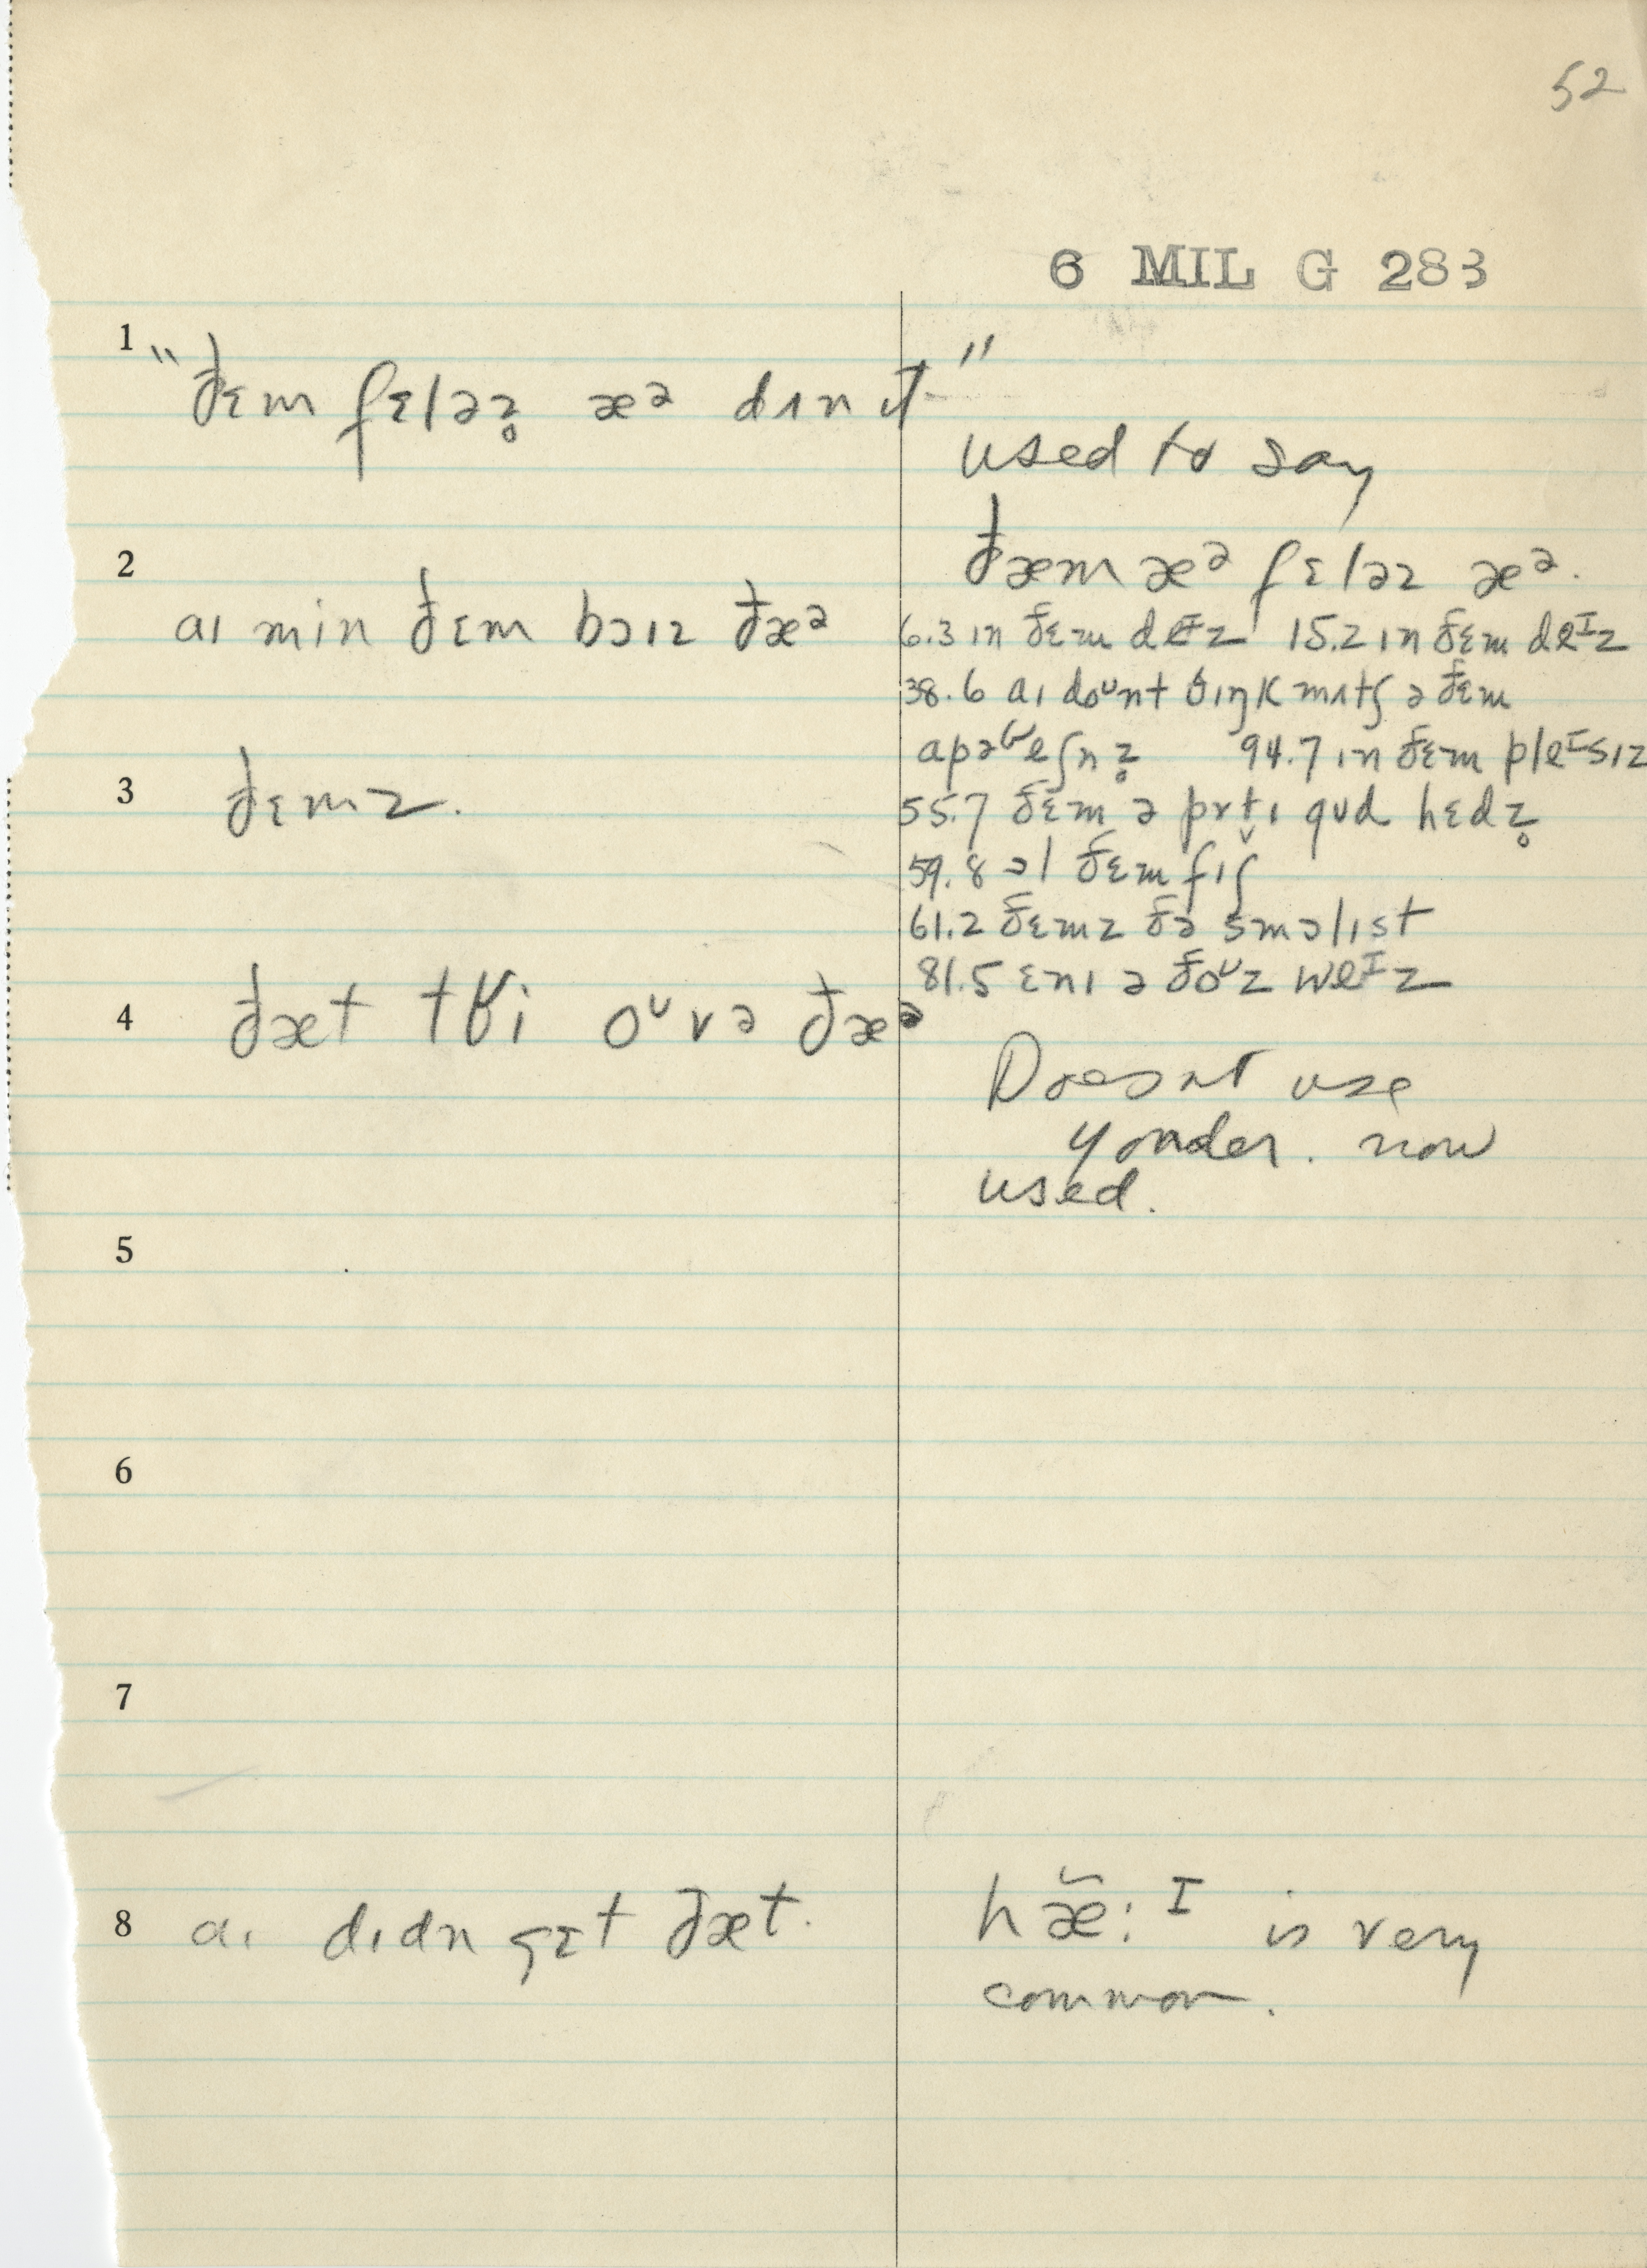 52
6 MIL G 283
1 "ðɛm fɛləz̥ æᵊ dʌn ɪt"
used to say
ðæm æᵊ fɛləz æᵊ.
2 aɪ min ðɛm bɔɪz ðæᵊ
6.3 ɪn ðɛm deᴵz 15.2 ɪn ðɛm deᴵz
38.6 aɪ doᶷnt θɪŋk mʌtʃ ə ðɛm
apəʁeʃn̩z̥ 94.7 ɪn ðɛm pleᴵsɪz
3 ðɛmz.
55.7 ðɛm ə prɪt̬ɪ gʊd hɛdz̥
59.8 ɔl ðɛm fɪʃ
61.2 ðɛmz ðə smɔlɪst
81.5 ɛnɪ ə ðoᶷz weᴵz
4 ðæt tʁi oᶷvə ðæᵊ
Doesnt use
yonder. now
used.
5
6
7
8 aɪ dɪdn gɛt ðæt.
hæ̃:ᴵ is very
common.